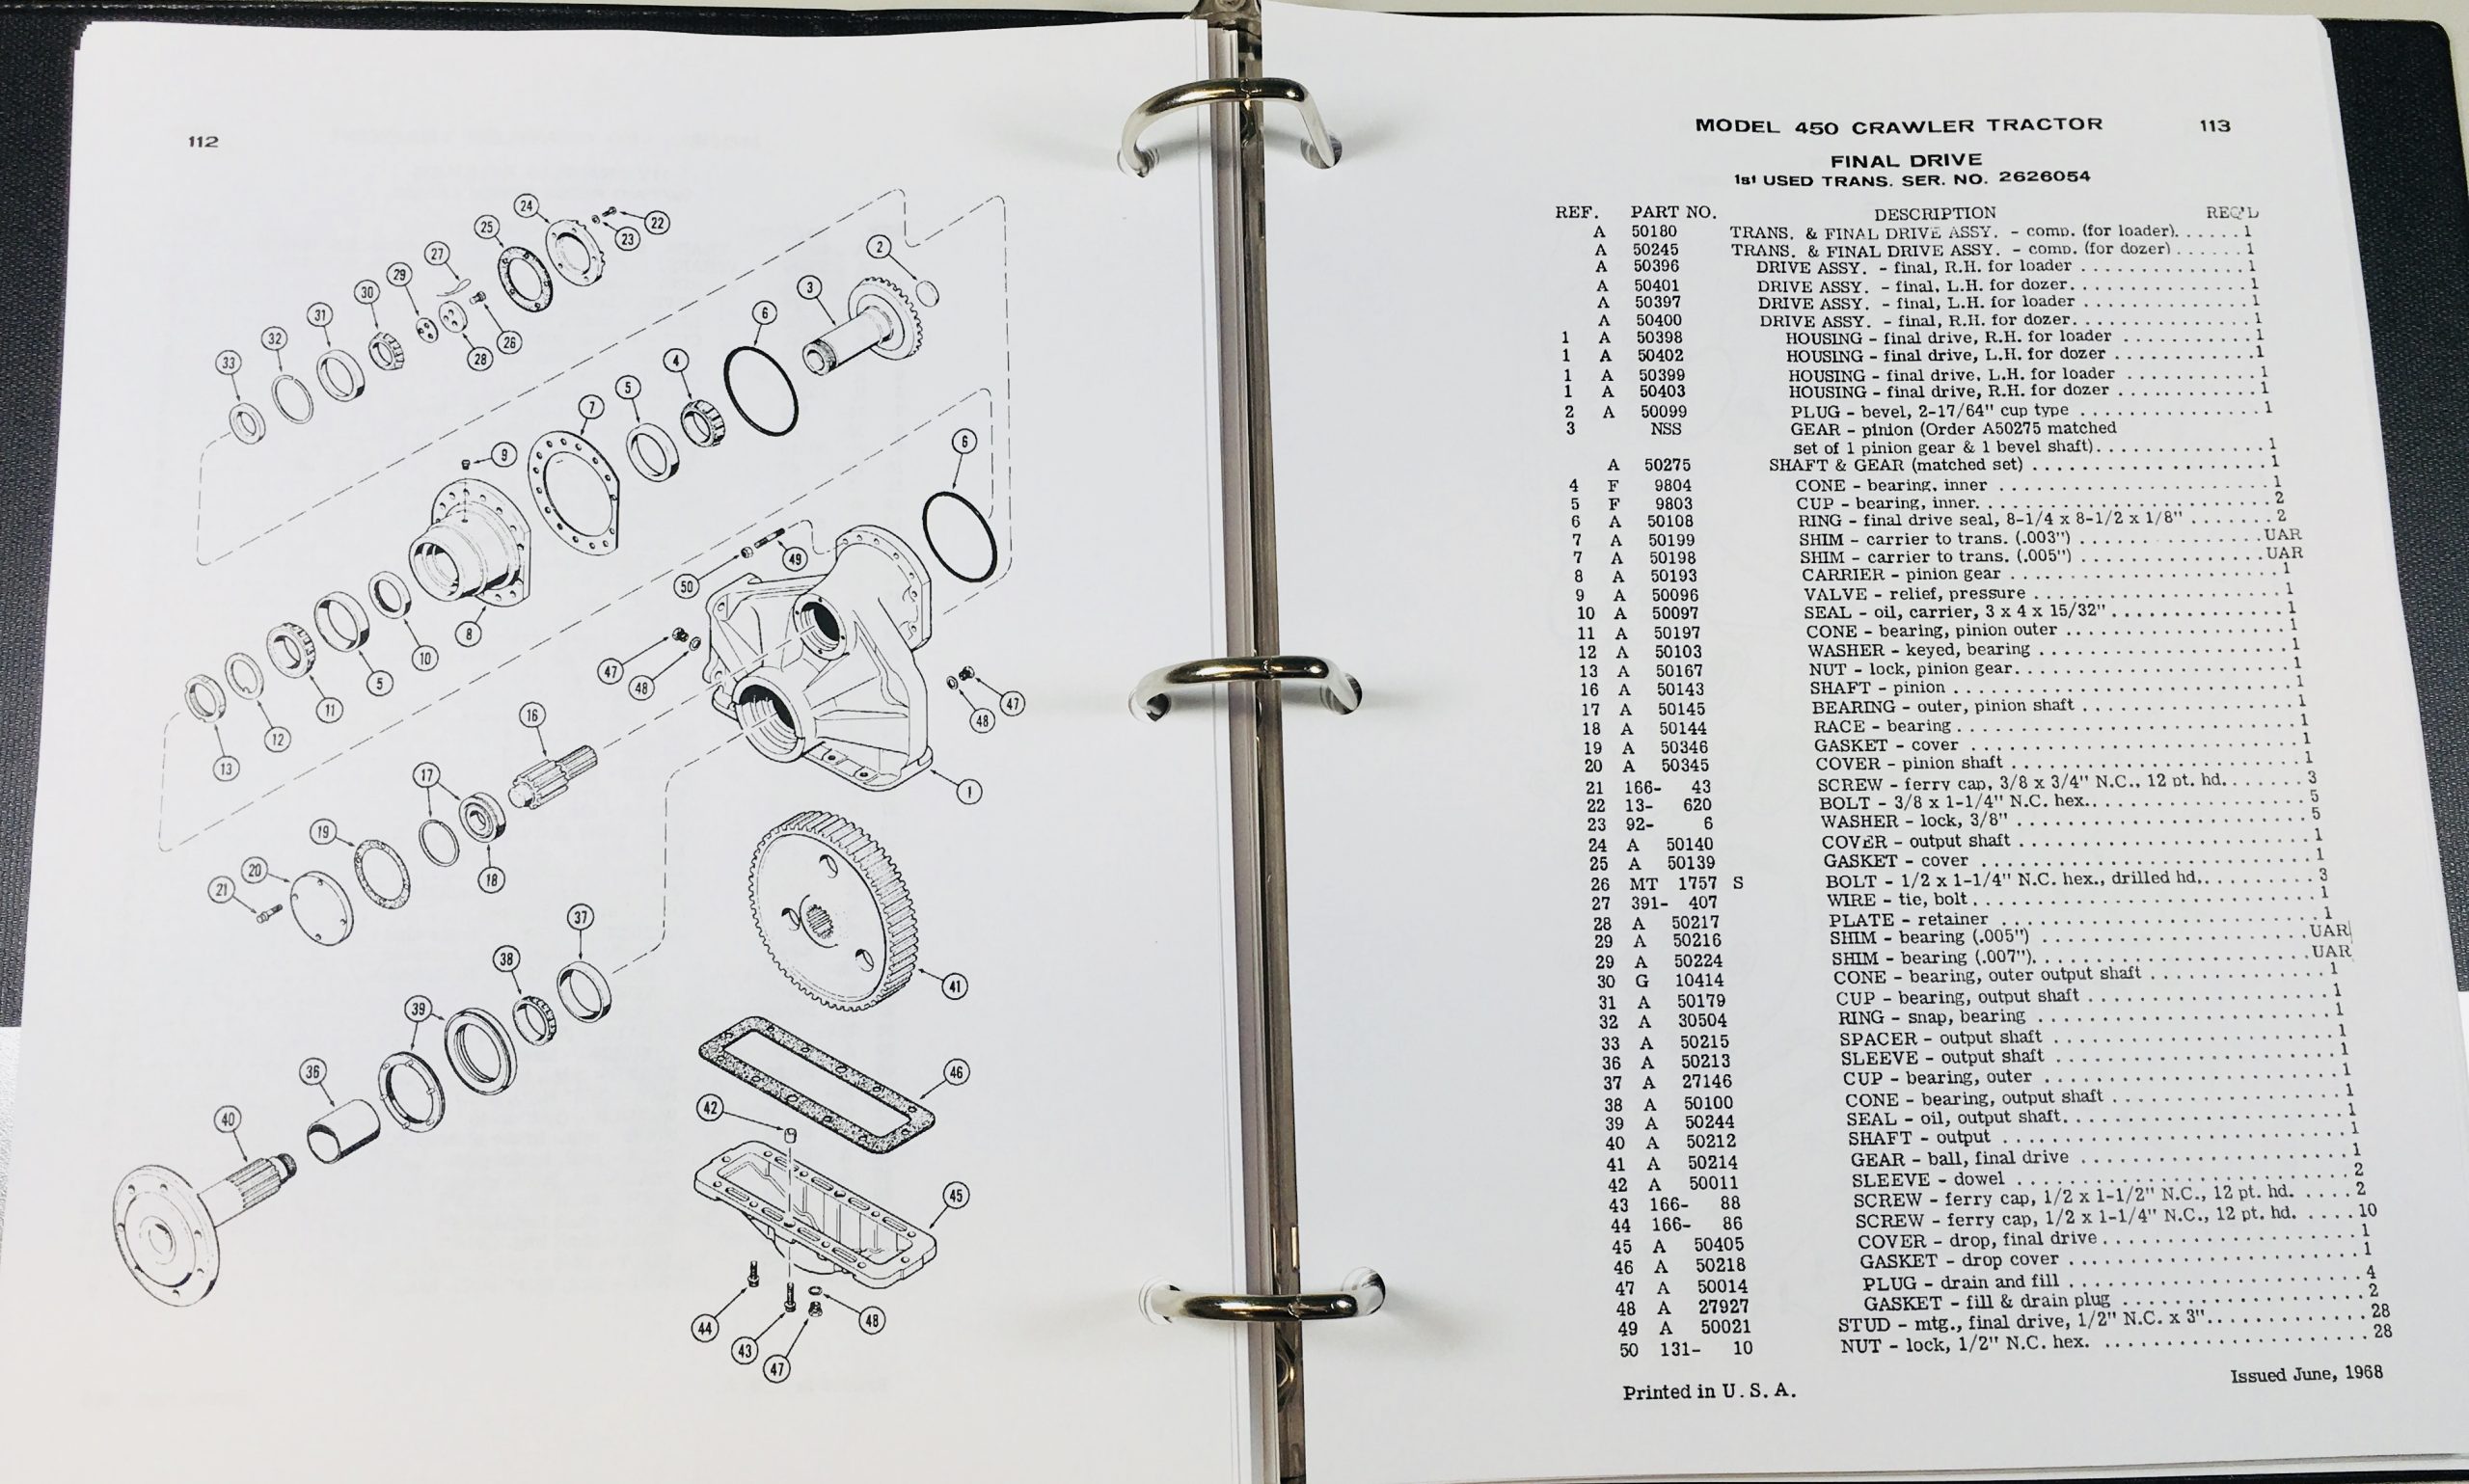 112
24
22
25
23
27
2
29
3
30
6
31
26
32
28
4
33
5
7
6
9
49
50
8
10
47
5
48
11
47
16
48
12
13
1
17
19
20
18
21
37
38
41
39
46
36
42
40
45
44
48
43
47
MODEL 450 CRAWLER TRACTOR 113
FINAL DRIVE
1st USED TRANS. SER. NO. 2626054
REF. PART NO. DESCRIPTION REQ'D
A 50180 TRANS. & FINAL DRIVE ASSY. - comp. (for loader)......1
A 50245 TRANS. & FINAL DRIVE ASSY. - comp. (for dozer).......1
A 50396 DRIVE ASSY. - final, R.H. for loader ...............1
A 50401 DRIVE ASSY. - final, L.H. for dozer................1
A 50397 DRIVE ASSY. - final, L.H. for loader ...............1
A 50400 DRIVE ASSY. - final, R.H. for dozer................1
1 A 50398 HOUSING - final drive, R.H. for loader ............1
1 A 50402 HOUSING - final drive, L.H. for dozer .............1
1 A 50399 HOUSING - final drive, L.H. for loader ............1
1 A 50403 HOUSING - final drive, R.H. for dozer .............1
2 A 50099 PLUG - bevel, 2-17/64" cup type ................1
3 NSS GEAR - pinion (Order A50275 matched
set of 1 pinion gear & 1 bevel shaft)...............1
A 50275 SHAFT & GEAR (matched set) .....................1
4 F 9804 CONE - bearing, inner ........................1
5 F 9803 CUP - bearing, inner..........................2
6 A 50108 RING - final drive seal, 8-1/4 x 8-1/2 x 1/8" .......2
7 A 50199 SHIM - carrier to trans. (.003") ................UAR
7 A 50198 SHIM - carrier to trans. (.005") ................UAR
8 A 50193 CARRIER - pinion gear .......................1
9 A 50096 VALVE - relief, pressure ......................1
10 A 50097 SEAL - oil, carrier, 3 x 4 x 15/32"...............1
11 A 50197 CONE - bearing, pinion outer ...................1
12 A 50103 WASHER - keyed, bearing .....................1
13 A 50167 NUT - lock, pinion gear.......................1
16 A 50143 SHAFT - pinion .............................1
17 A 50145 BEARING - outer, pinion shaft ..................1
18 A 50144 RACE - bearing .............................1
19 A 50346 GASKET - cover ............................1
20 A 50345 COVER - pinion shaft ........................1
21 166- 43 SCREW - ferry cap, 3/8 x 3/4" N.C., 12 pt. hd.......3
22 13- 620 BOLT - 3/8 x 1-1/4" N.C. hex...................5
23 92- 6 WASHER - lock, 3/8" ........................5
24 A 50140 COVER - output shaft ........................1
25 A 50139 GASKET - cover ............................1
26 MT 1757 S BOLT - 1/2 x 1-1/4" N.C. hex., drilled hd..........3
27 391- 407 WIRE - tie, bolt .............................1
28 A 50217 PLATE - retainer ...........................1
29 A 50216 SHIM - bearing (.005") .......................UAR
29 A 50224 SHIM - bearing (.007")........................UAR
30 G 10414 CONE - bearing, outer output shaft ..............1
31 A 50179 CUP - bearing, output shaft ....................1
32 A 30504 RING - snap, bearing ........................1
33 A 50215 SPACER - output shaft .......................1
36 A 50213 SLEEVE - output shaft .......................1
37 A 27146 CUP - bearing, outer ........................1
38 A 50100 CONE - bearing, output shaft ..................1
39 A 50244 SEAL - oil, output shaft......................1
40 A 50212 SHAFT - output ............................1
41 A 50214 GEAR - ball, final drive .....................1
42 A 50011 SLEEVE - dowel ............................2
43 166- 88 SCREW - ferry cap, 1/2 x 1-1/2" N.C., 12 pt. hd. .....2
44 166- 86 SCREW - ferry cap, 1/2 x 1-1/4" N.C., 12 pt. hd. .....10
45 A 50405 COVER - drop, final drive .....................1
46 A 50218 GASKET - drop cover ........................1
47 A 50014 PLUG - drain and fill ........................4
48 A 27927 GASKET - fill & drain plug ....................2
49 A 50021 STUD - mtg., final drive, 1/2" N.C. x 3".............28
50 131- 10 NUT - lock, 1/2" N.C. hex. ....................28
Printed in U.S.A. Issued June, 1968